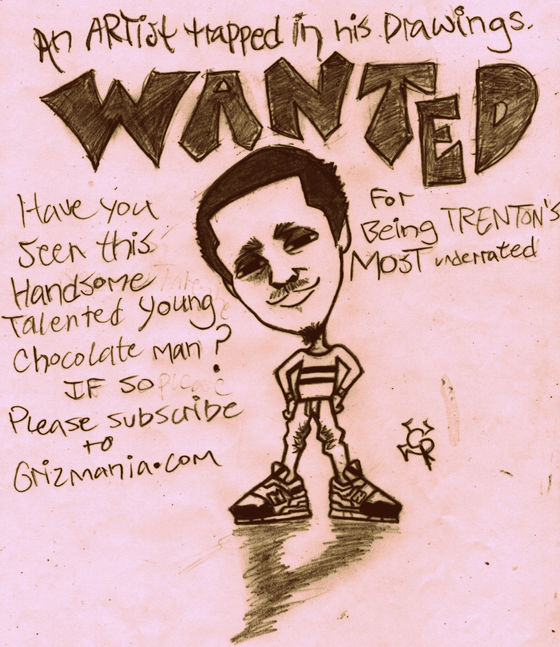 An ARTist trapped in his Drawings.
WANTED
Have you
Seen this
Handsome
Talented young
Chocolate man?
IF SO
Please subscribe
to
Grizmania.com
For
Being TRENTON'S
MOST underrated